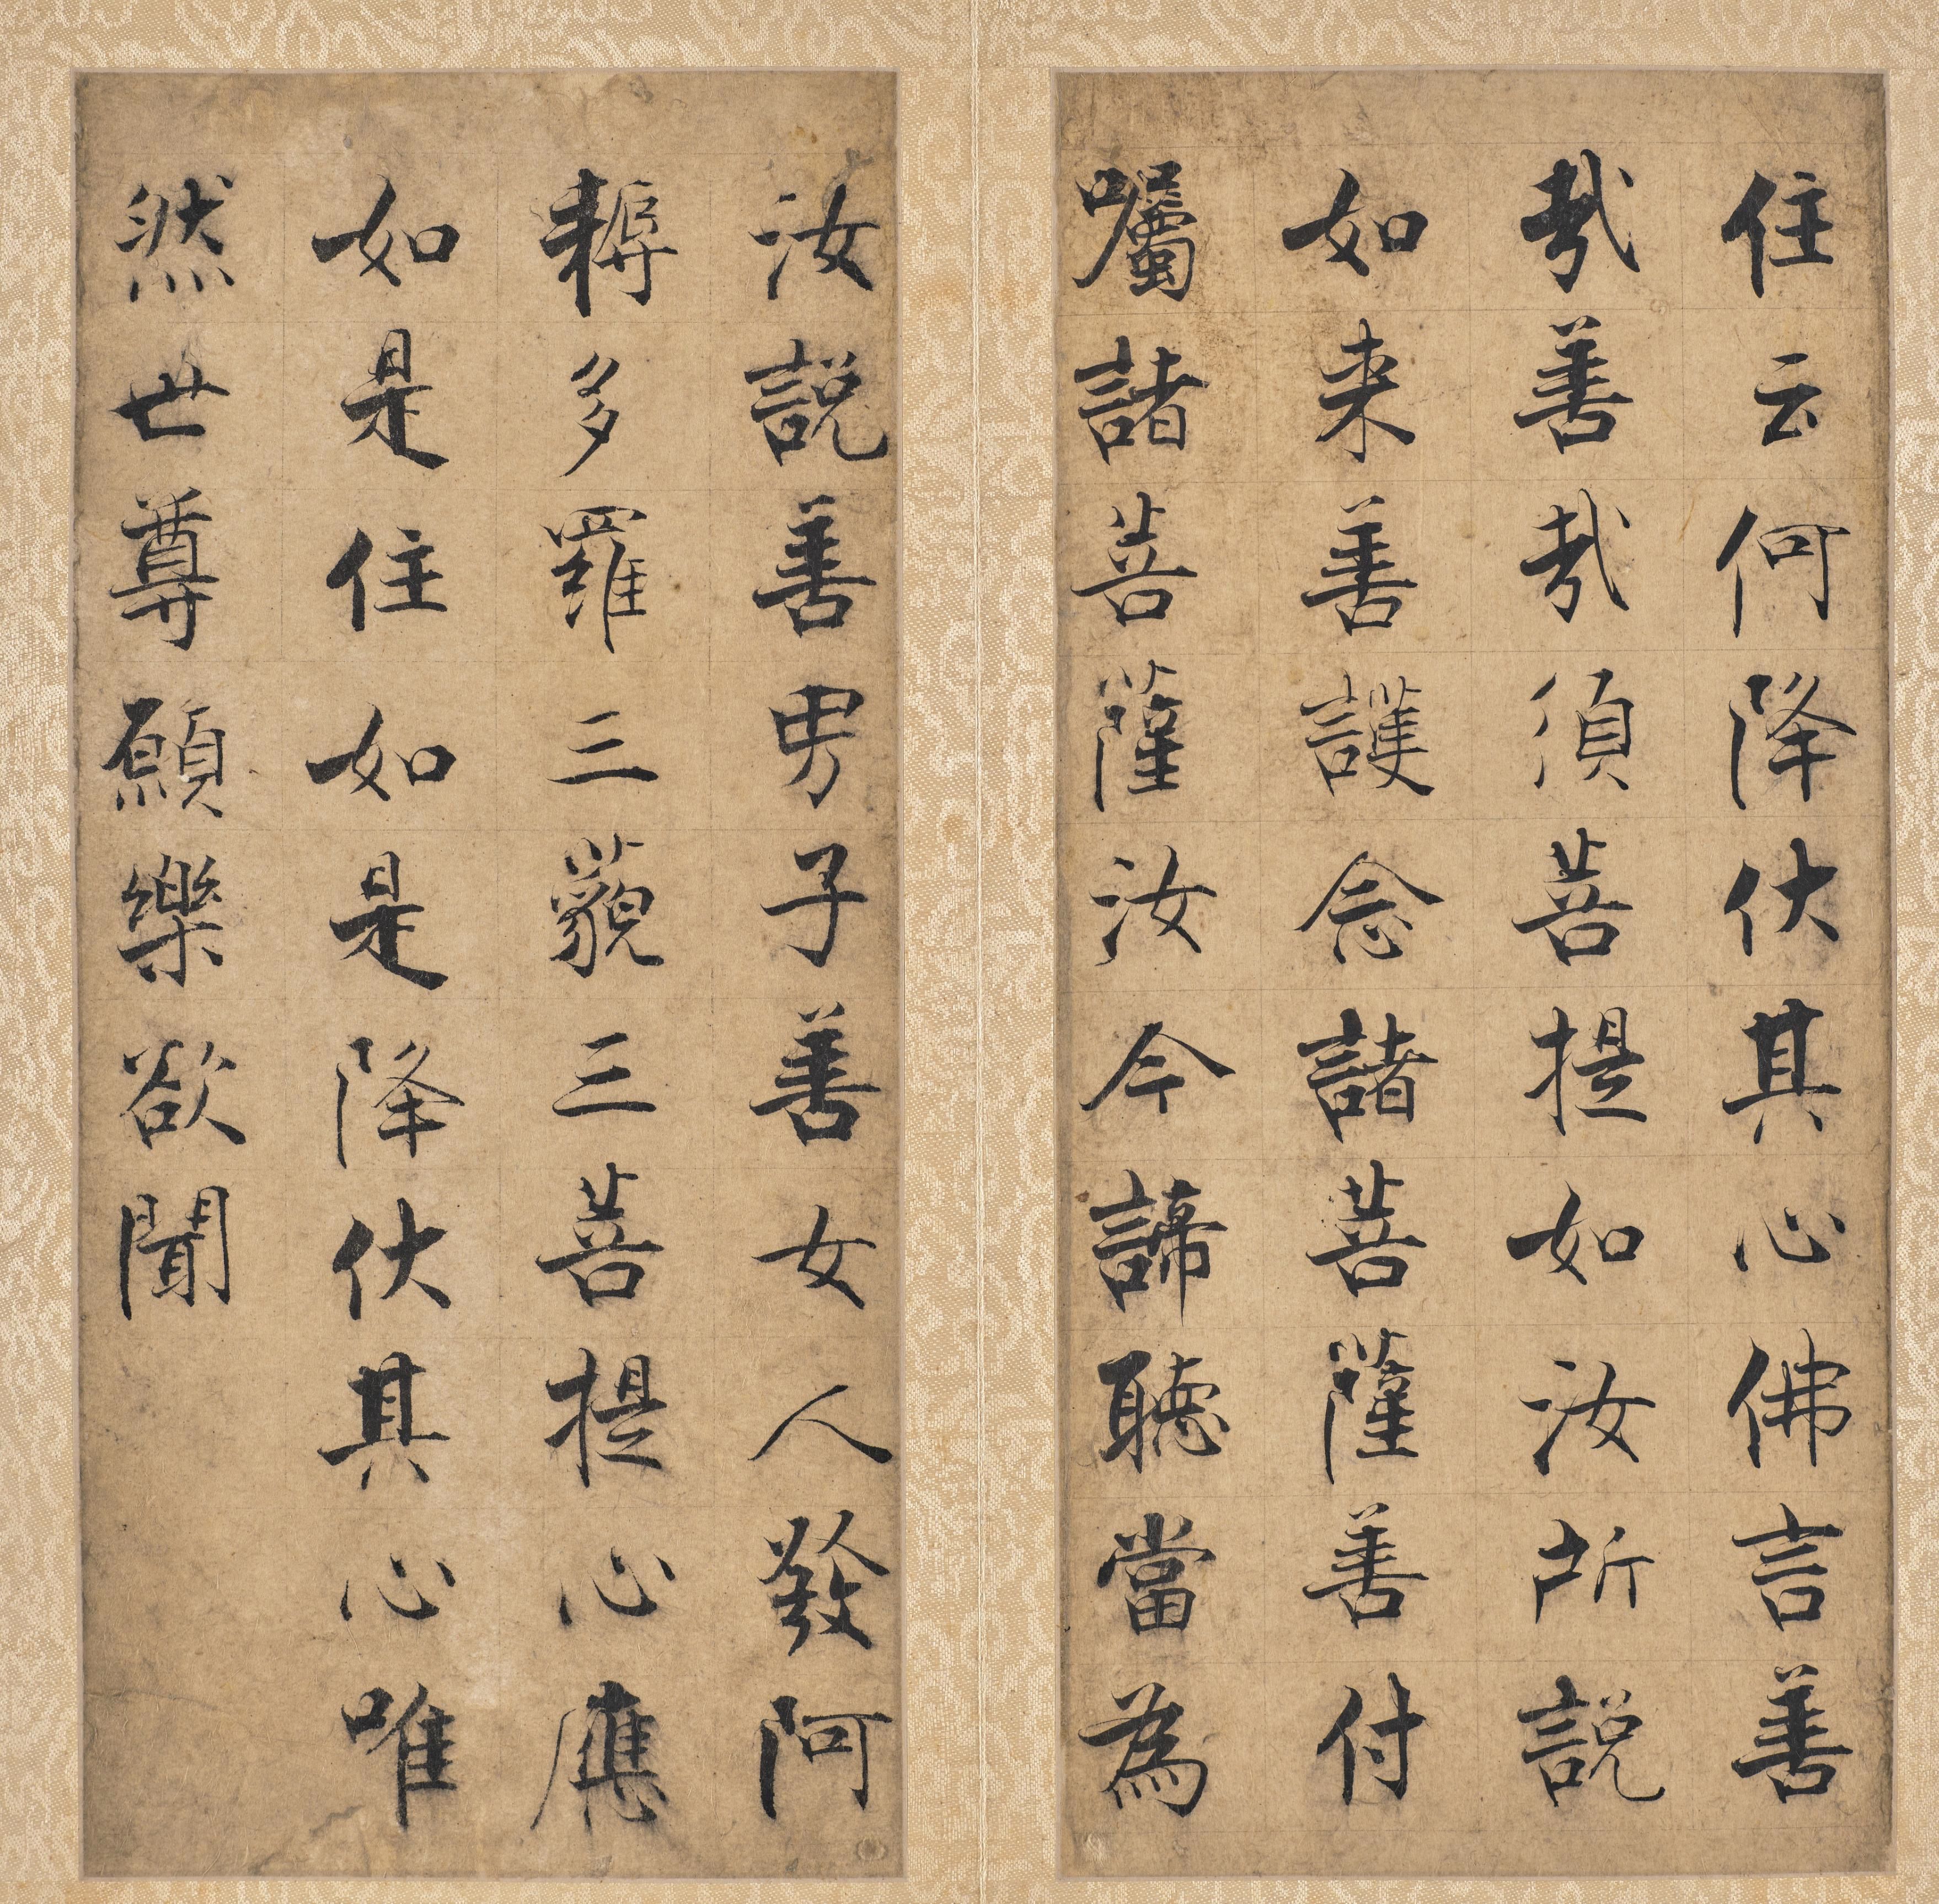 住云何降伏其心佛言善
哉善哉須菩提如汝所說
如来善護念諸菩薩善付
囑諸菩薩汝今諦聽當為
汝說善男子善女人發阿
耨多羅三藐三菩提心應
如是住如是降伏其心唯
然世尊願樂欲聞